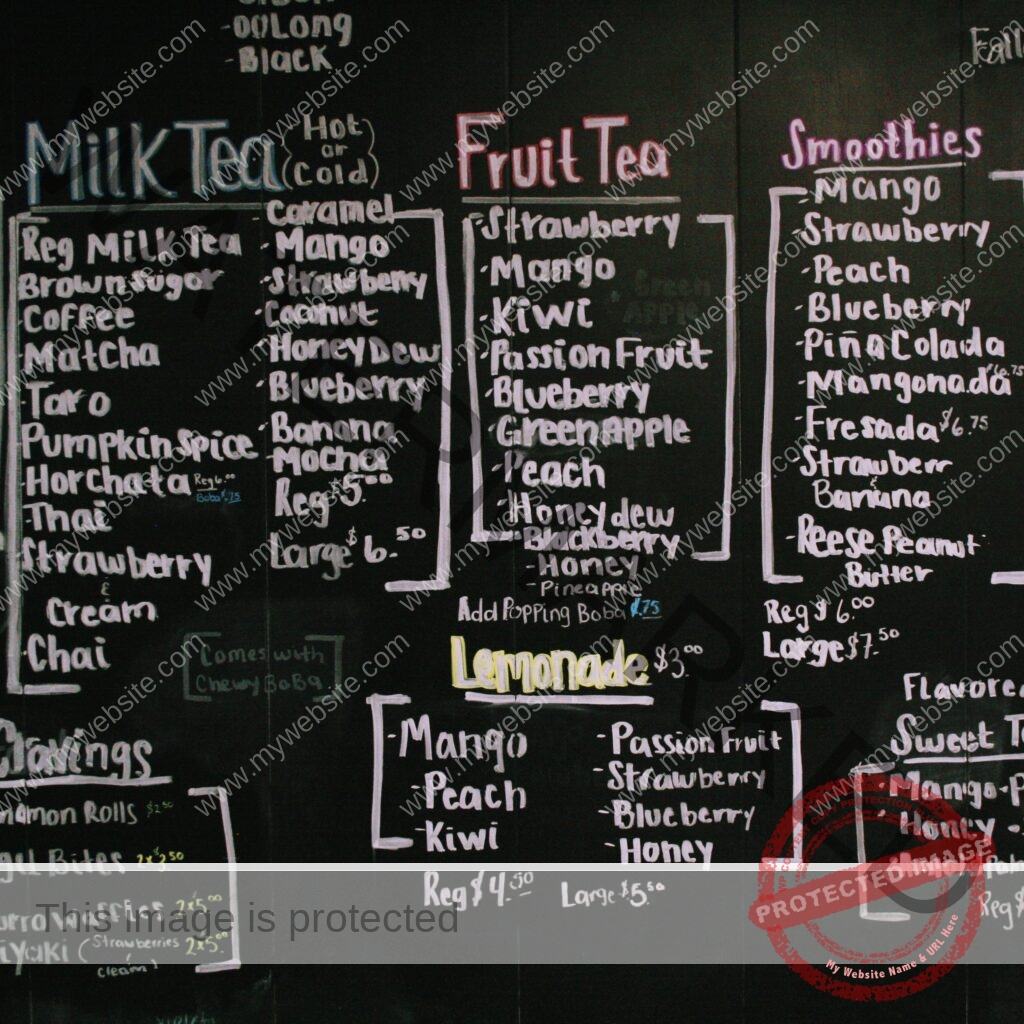 -oolong
-Black
Fall
Milk Tea (Hot or Cold)
Reg Milk Tea
Brown sugar
Coffee
Matcha
Taro
Pumpkin Spice
Horchata Reg 6.00
Boba $.75
Thai
Strawberry
&
Cream
Chai
Caramel
-Mango
-Strawberry
-Coconut
-Honey Dew
-Blueberry
-Banana
-Mocha
Reg $5.00
Large $6.50
[Comes with
Chewy BoBa]
Fruit Tea
-Strawberry
-Mango
-Kiwi
-Passion Fruit
-Blueberry
-Green Apple
-Peach
-Honey dew
-Blackberry
-Honey
-Pineapple
Green
Apple
Add Popping Boba $.75
Smoothies
-Mango
-Strawberry
-Peach
-Blueberry
-Piña Colada
-Mangonada $6.75
-Fresada $6.75
-Strawberr
&
Banana
-Reese Peanut
Butter
Reg $6.00
Large $7.50
Lemonade $3.00
-Mango
-Peach
-Kiwi
-Passion Fruit
-Strawberry
-Blueberry
-Honey
Reg $4.50 Large $5.50
Rolls $2.50
Bites 2x$3.50
2x5.00
(Strawberries 2x5.00
cream)
Flavored
Sweet T
-Mango -P
-Honey -
Reg $
www.mywebsite.com
This image is protected
PROTECTED IMAGE
My Website Name & URL Here